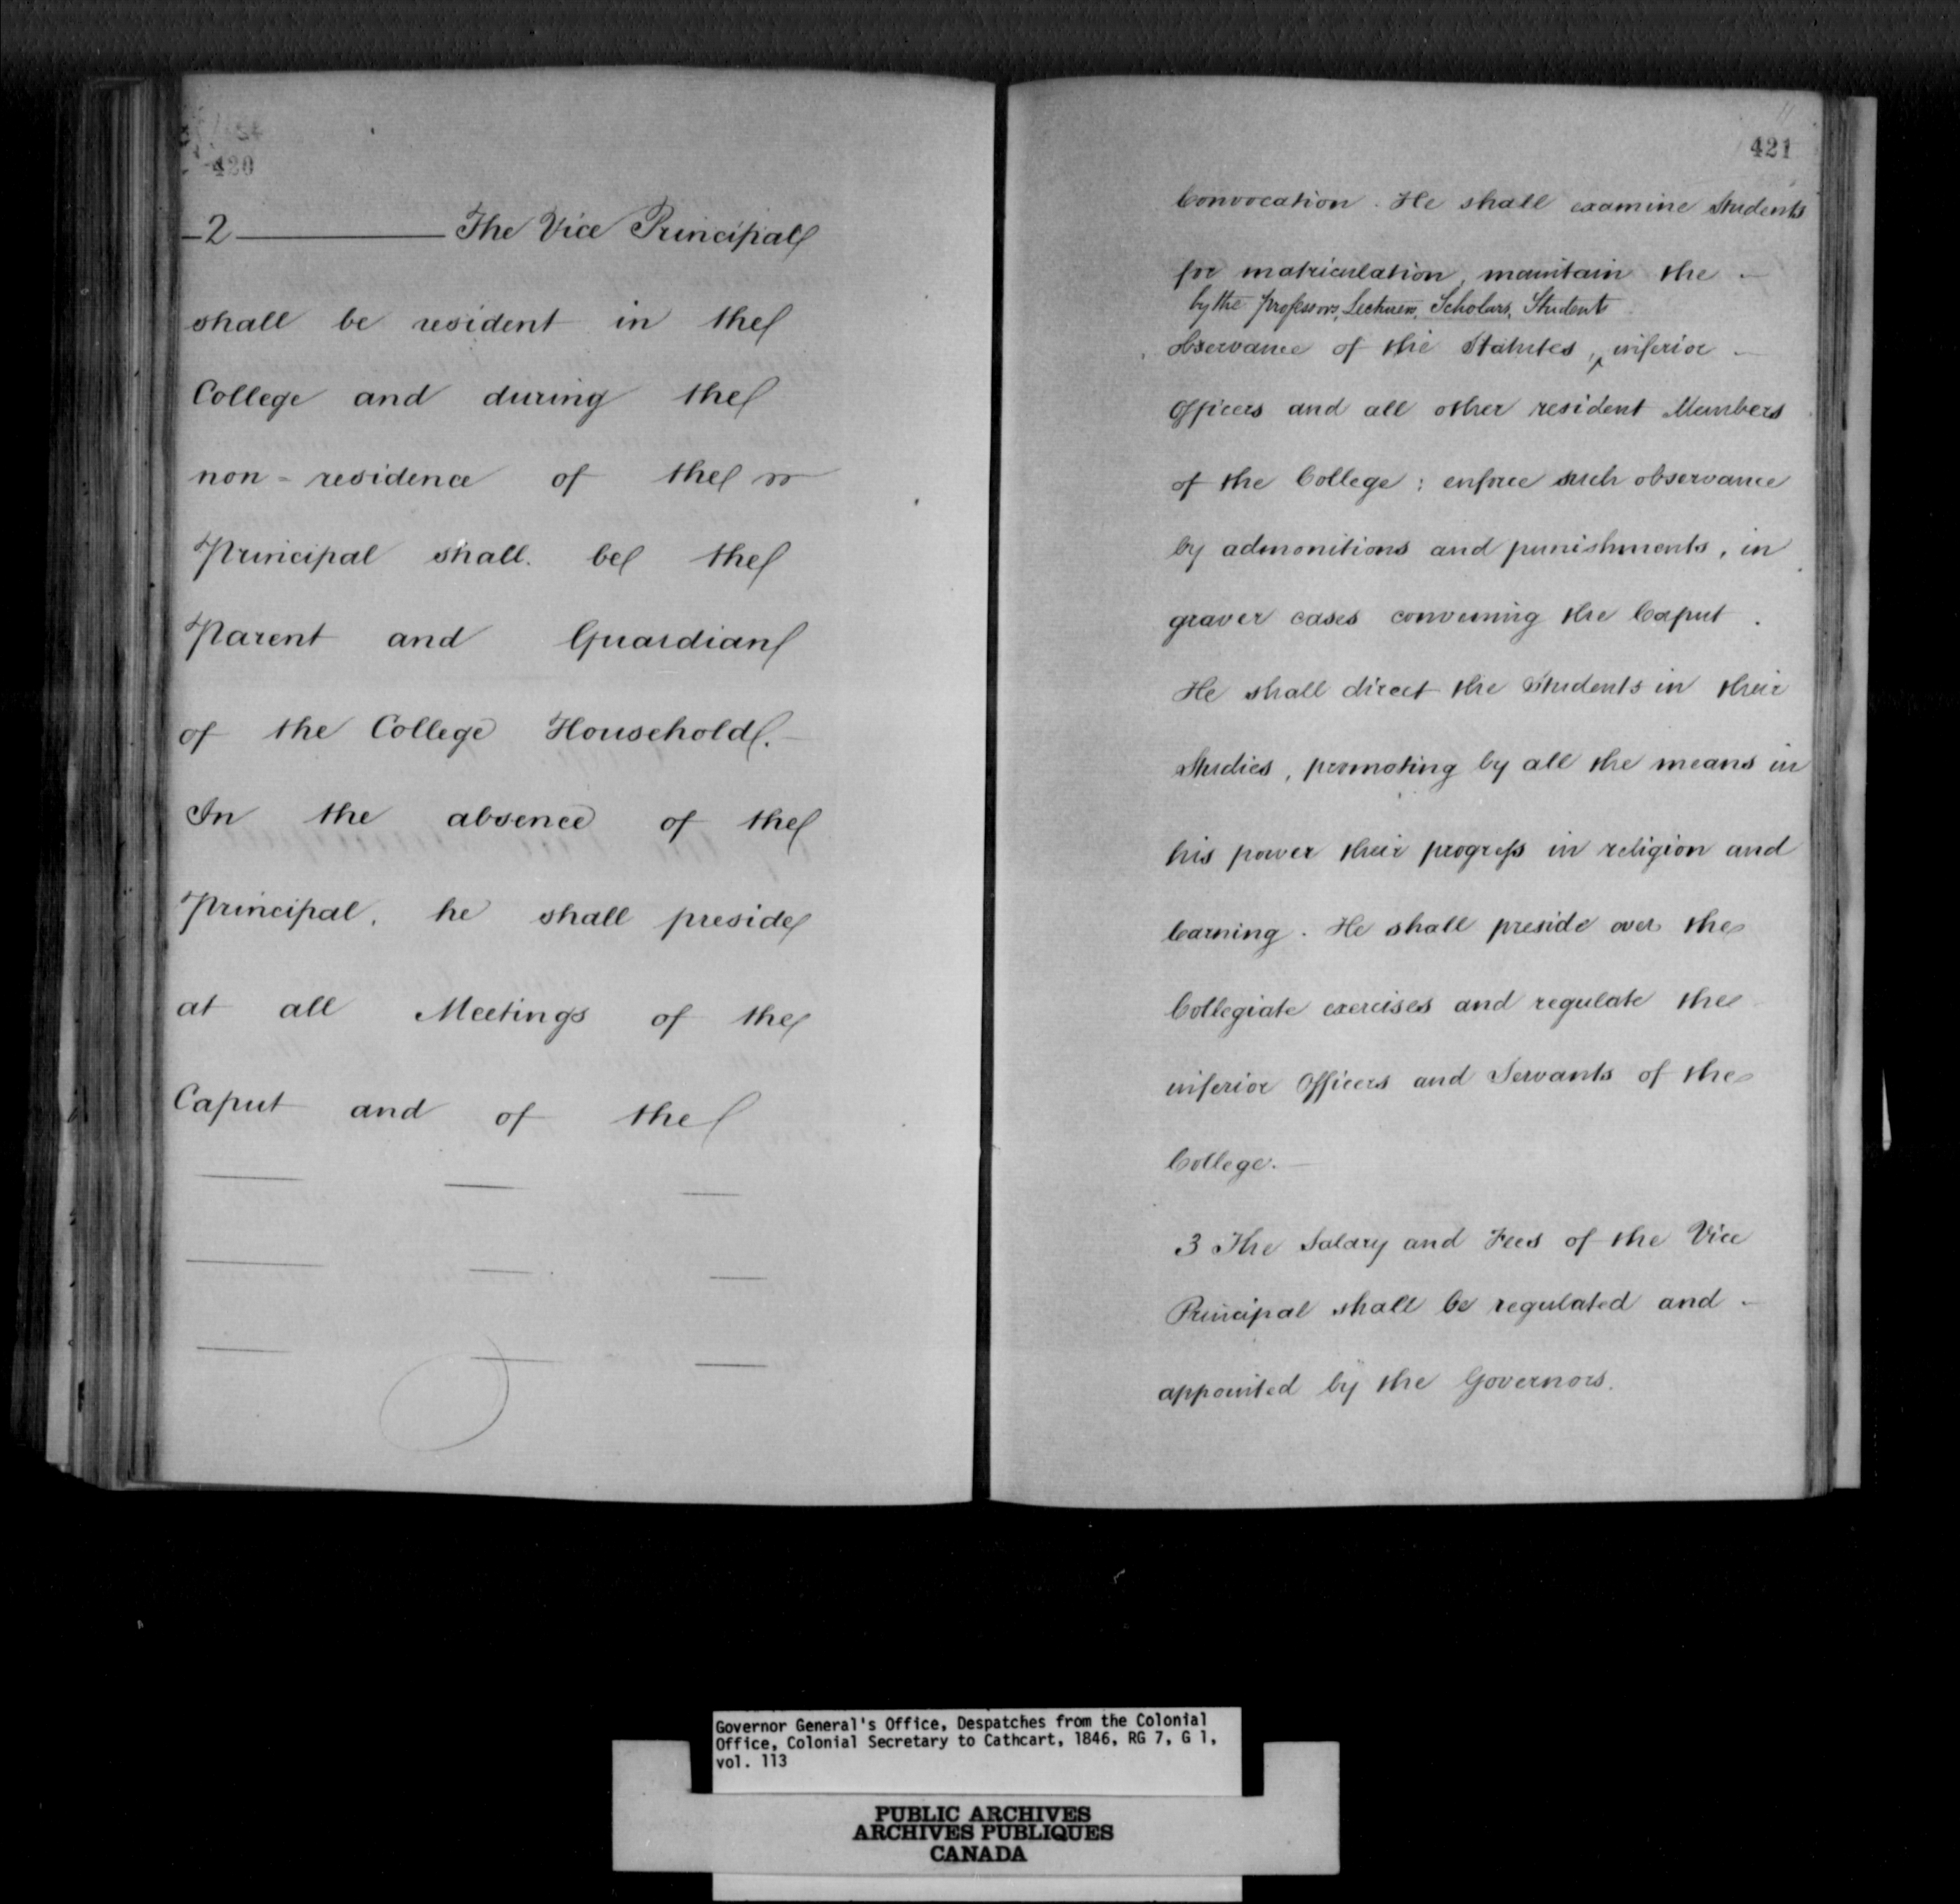 420
2 The Vice Principal
shall be resident in the
College and during the
non=residence of the
Principal shall be the
Parent and Guardian
of the College Household.
In the absence of the
Principal, he shall preside
at all Meetings of the
Caput and of the
421
Convocation. He shall examine Students
for matriculation, maintain the
by the Professors, Lecturers, Scholars, Students
observance of the Statutes, ^ inferior
Officers and all other resident Members
of the College; enforce such observance
by admonitions and punishments, in
graver cases convening the Caput.
He shall direct the Students in their
Studies, promoting by all the means in
his power their progress in religion and
learning. He shall preside over the
Collegiate exercises and regulate the
inferior Officers and Servants of the
College.
3 The Salary and Fees of the Vice
Principal shall be regulated and
appointed by the Governors.
Governor General's Office, Despatches from the Colonial
Office, Colonial Secretary to Cathcart, 1846, RG 7, G 1,
vol. 113
PUBLIC ARCHIVES
ARCHIVES PUBLIQUES
CANADA